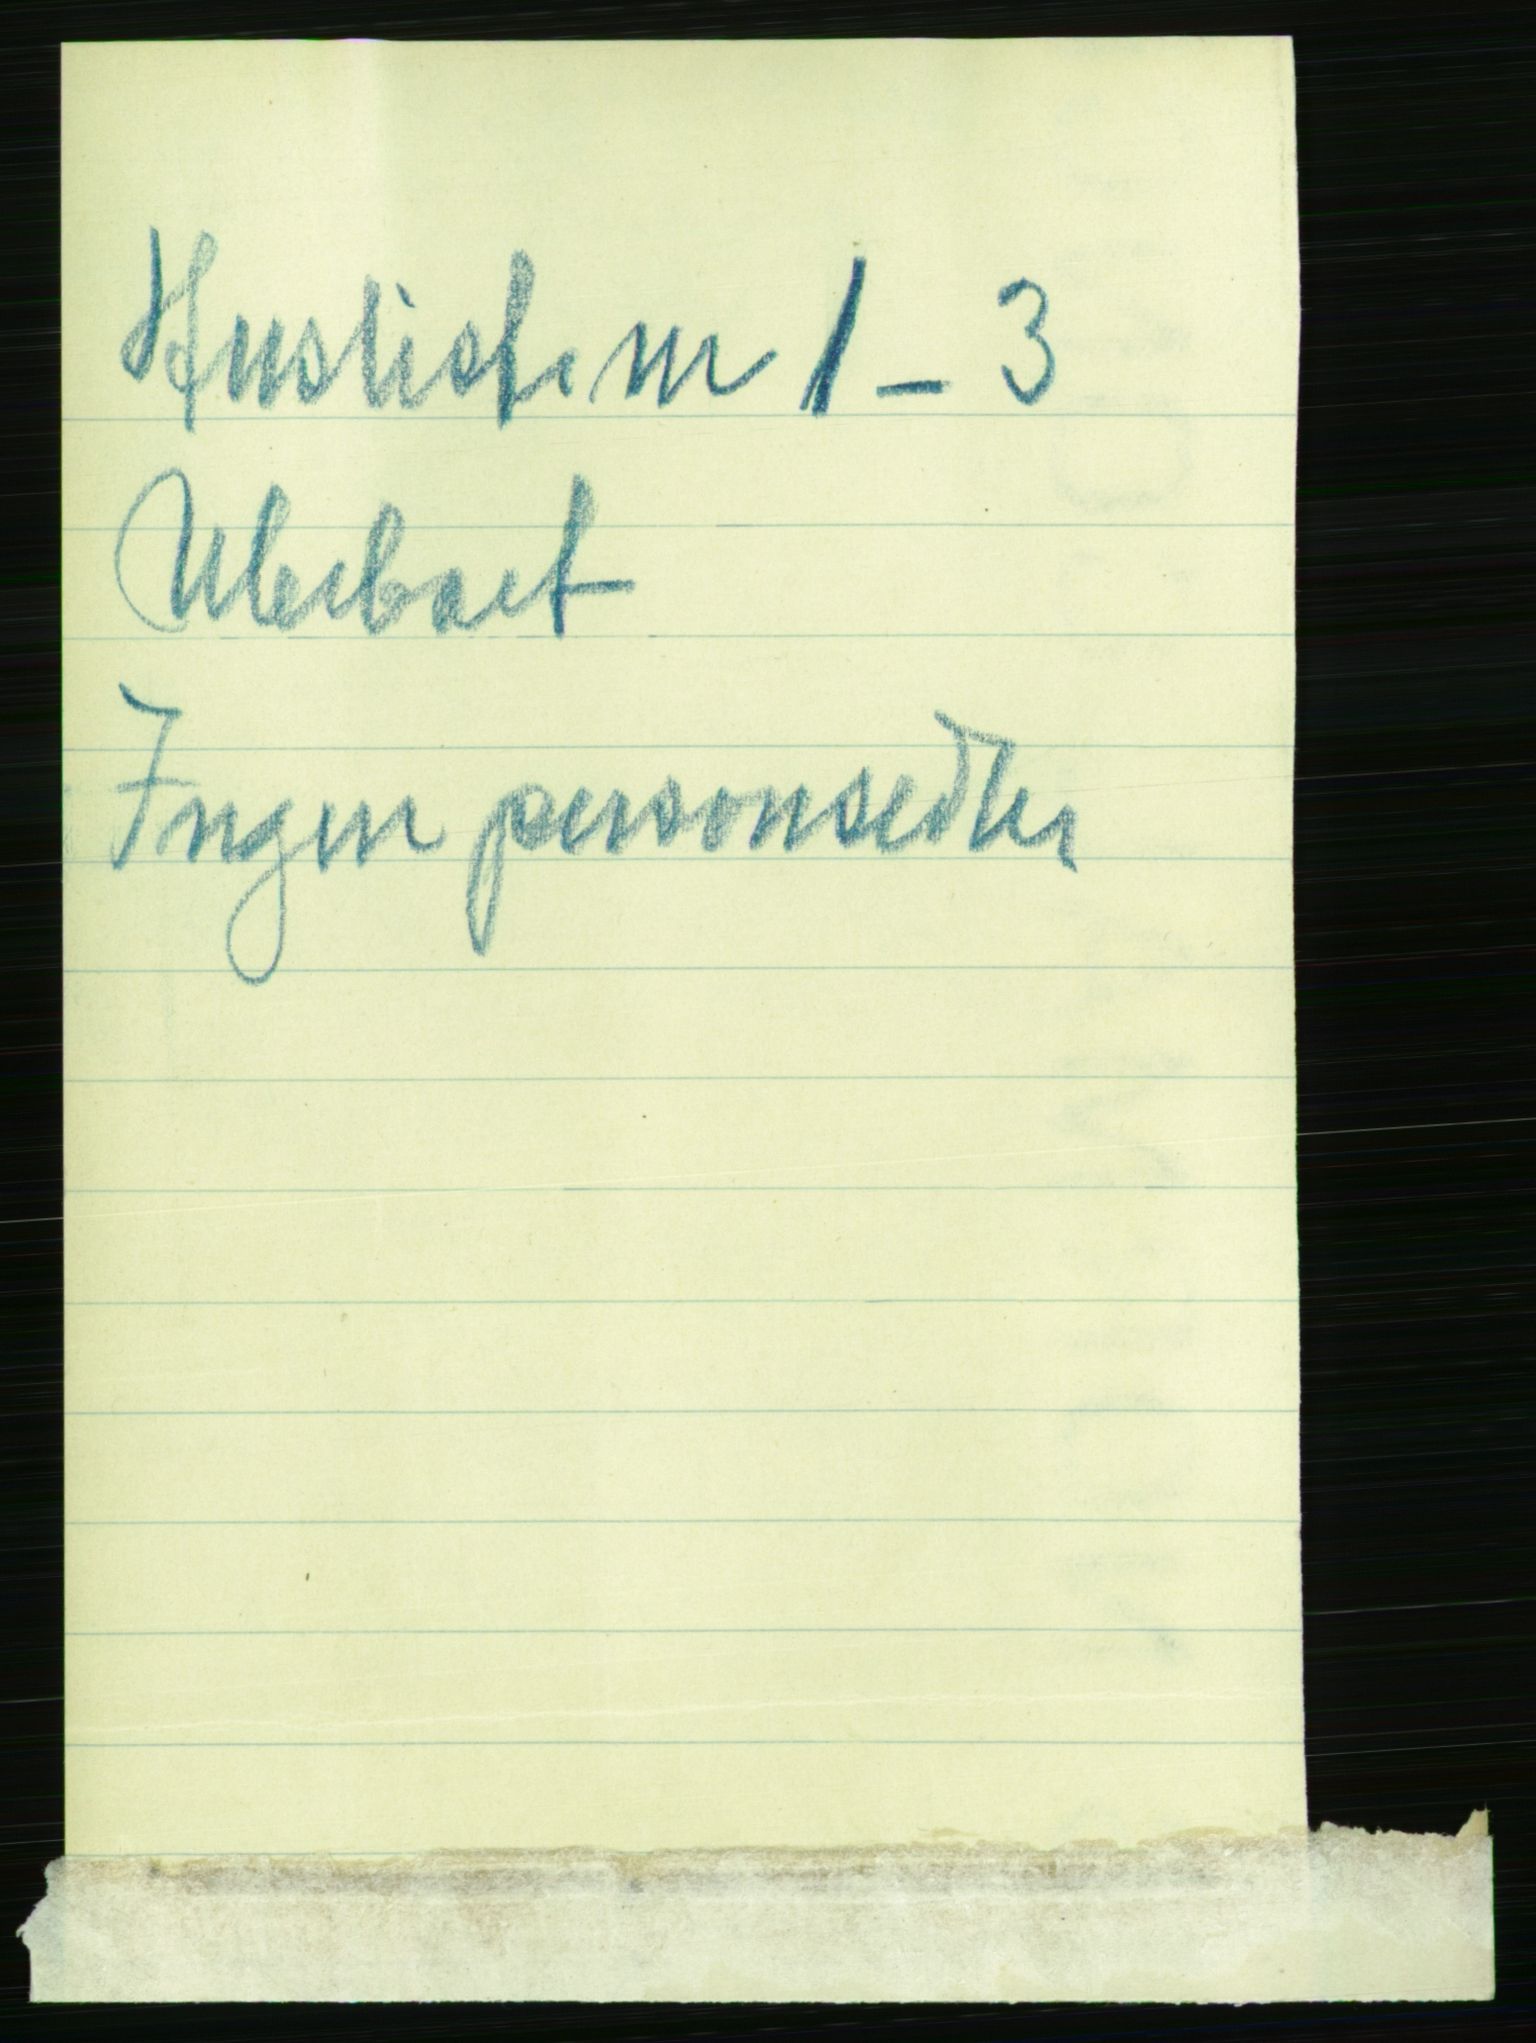 Husliste nr 1 - 3
Ubebodt
Ingen personsedler